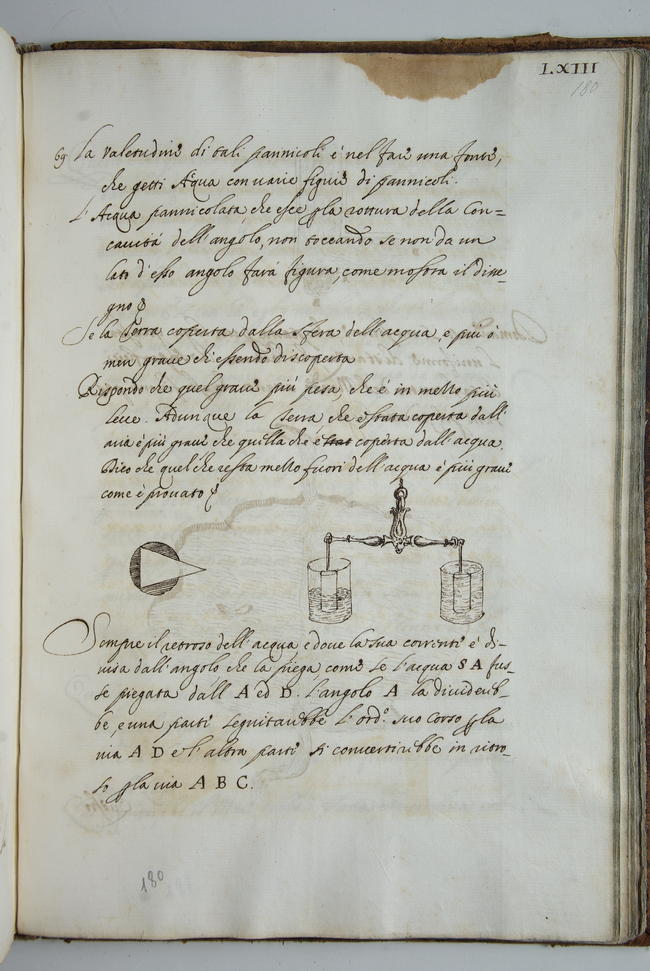 LXIII
180
69 La valetudine di tali pannicoli è nel fare una fonte,
che getti Aqua con varie figure di pannicoli.
L'Acqua pannicolata, che esce p la rottura della Con=
cavità dell'angolo, non toccando se non da un
lato d'esso angolo farà figura, come mostra il dise-
gno
Se la Terra coperta dalla sfera dell'acqua, e più ò
men grave ch'essendo discoperta
Rispondo che quel grave più pesa, che è in mezzo più
leve. Adunque la Terra, che è stata coperta dall'
aria è più grave che quella che è stat coperta dall'acqua.
Dico che quel che resta mezzo fuori dell'acqua è più grave
come è provato
Sempre il retroso dell'acqua è dove la sua corrente è di-
visa dall'angolo che la piega, come se l'acqua S A fus-
se piegata dall'A ed D. L'angolo A la dividereb-
be, e una parte seguitarebbe l'ord.º suo corso p la
via A D e l'altra parte si convertirebbe in retro-
so p la via A B C.
180